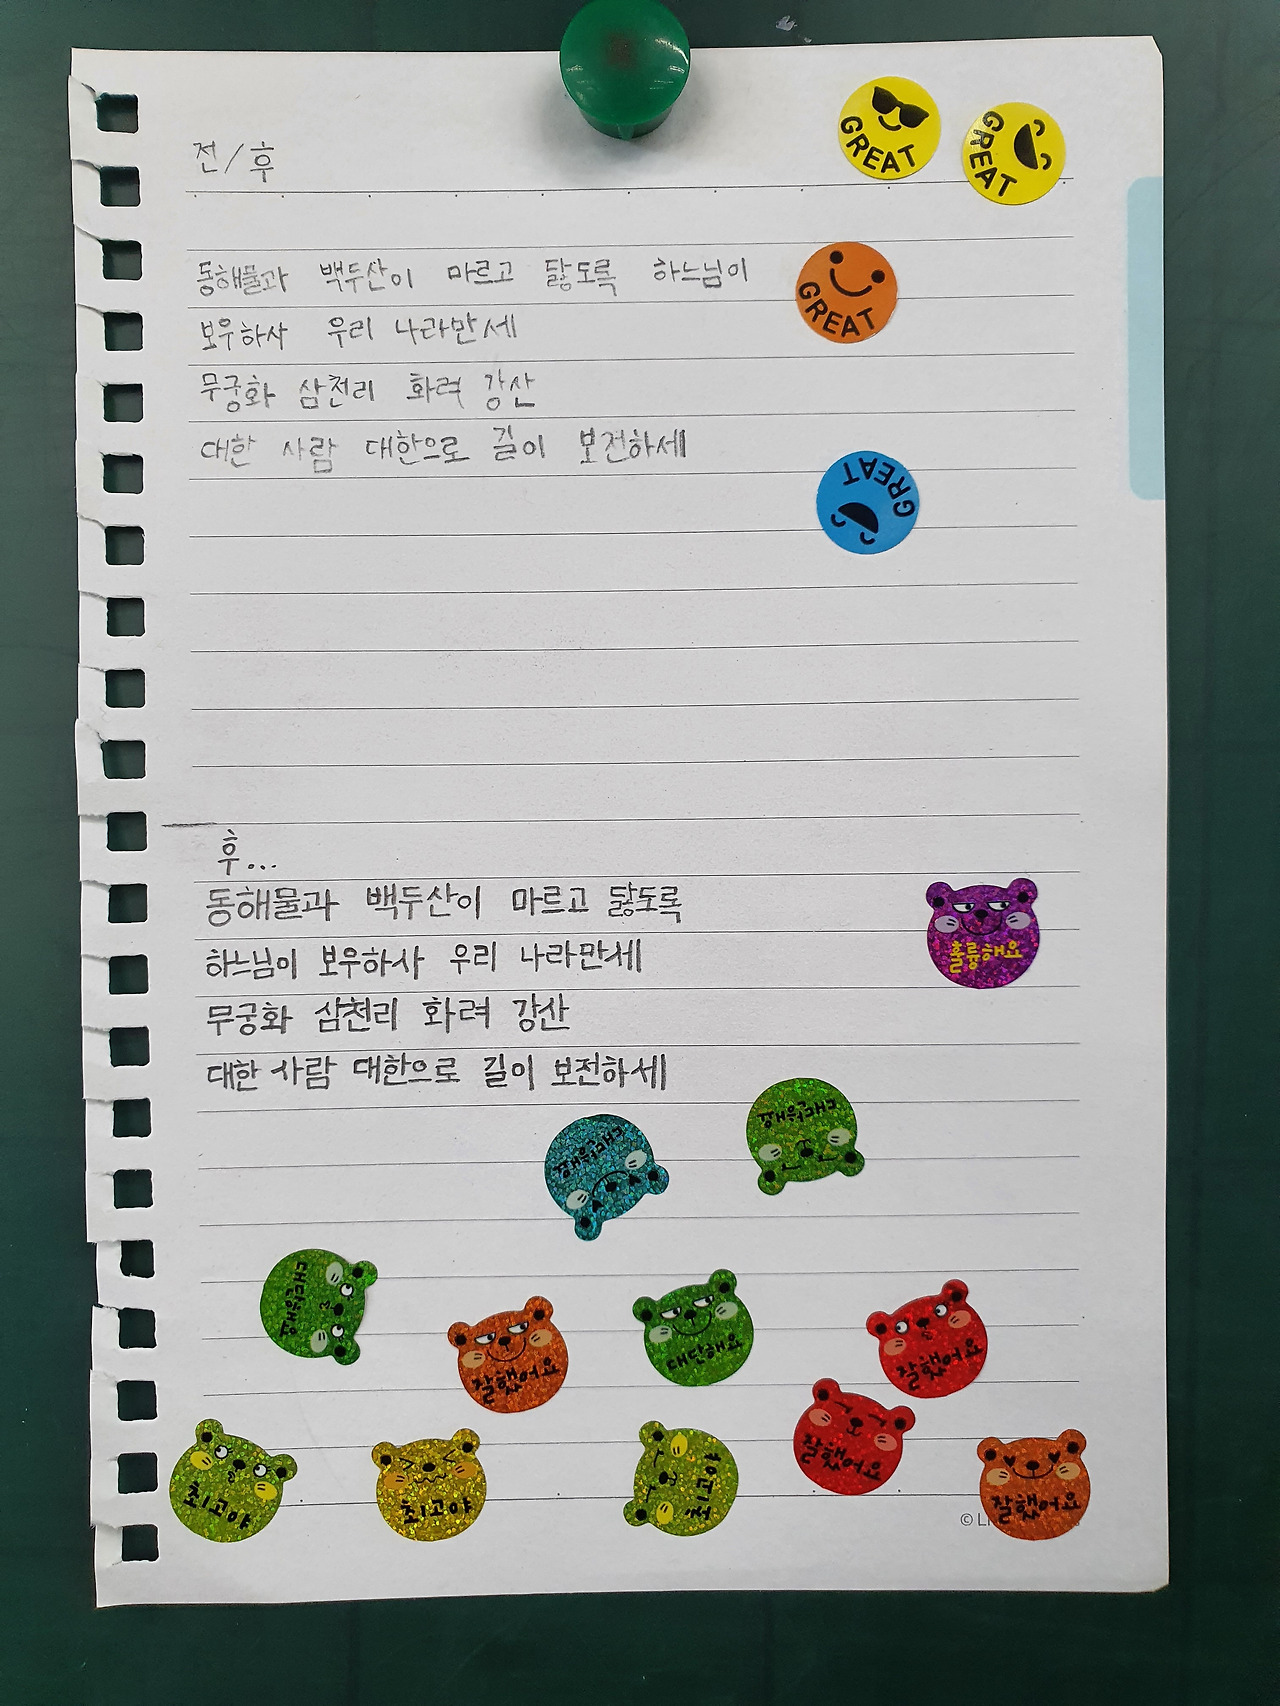 전/후
GREAT
GREAT
동해물과 백두산이 마르고 닳도록 하느님이
GREAT
보우하사 우리 나라만세
무궁화 삼천리 화려 강산
대한 사람 대한으로 길이 보전하세
GREAT
후...
동해물과 백두산이 마르고 닳도록
하느님이 보우하사 우리 나라만세
훌륭해요
무궁화 삼천리 화려 강산
대한 사람 대한으로 길이 보전하세
잘했어요
대단해요
잘했어요
잘했어요
최고야
최고야
최고야
잘했어요
©